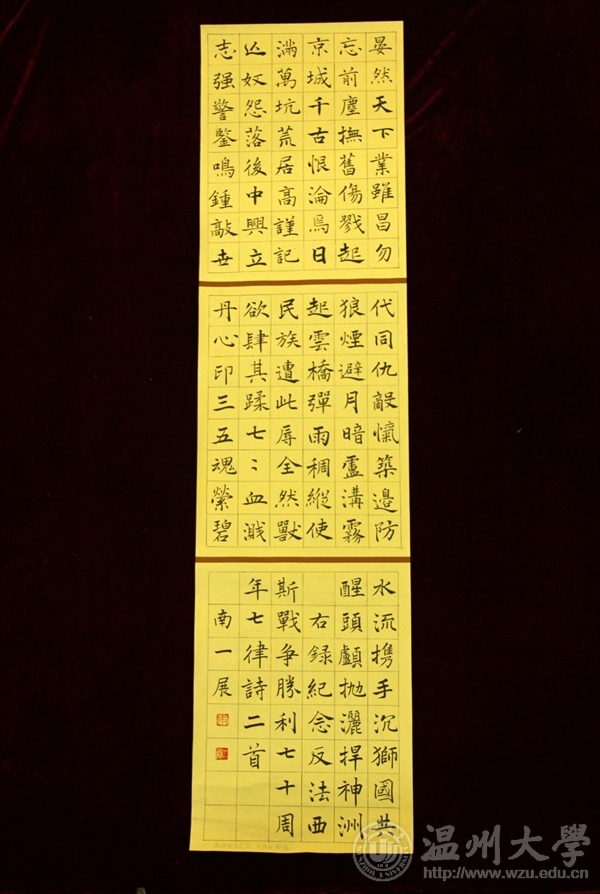 晏然天下業雖昌勿
忘前塵撫舊傷戮起
京城千古恨淪為日
滿萬坑荒居高謹記
亾奴怨落後中興立
志强警鑒鳴鍾敲世
代同仇敵愾築邊防
狼煙避月暗盧溝霧
起雲橋彈雨稠縱使
民族遭此辱全然獸
欲肆其蹂七〻血濺
丹心印三五魂縈碧
水流携手沉獅國共
醒頭顱拋灑捍神洲
右錄紀念反法西
斯戰爭勝利七十周
年七律詩二首
南一展
温州大學
http://www.wzu.edu.cn